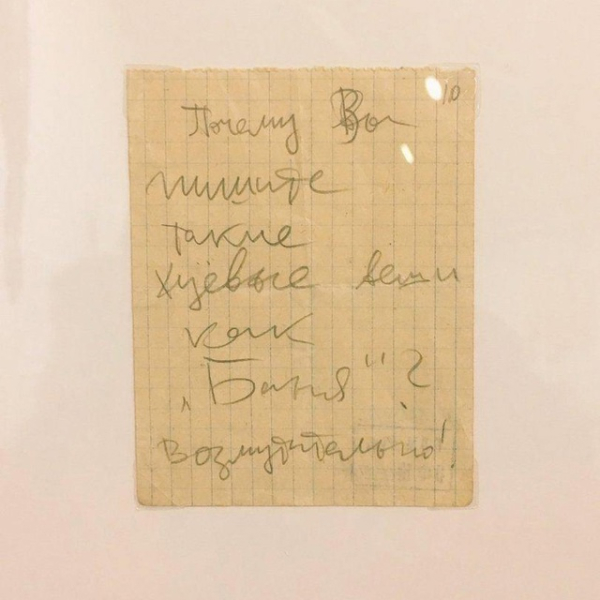 10
Почему Вы
пишите
такие
хуёвые вещи
как
„Баня“?
Возмутительно!